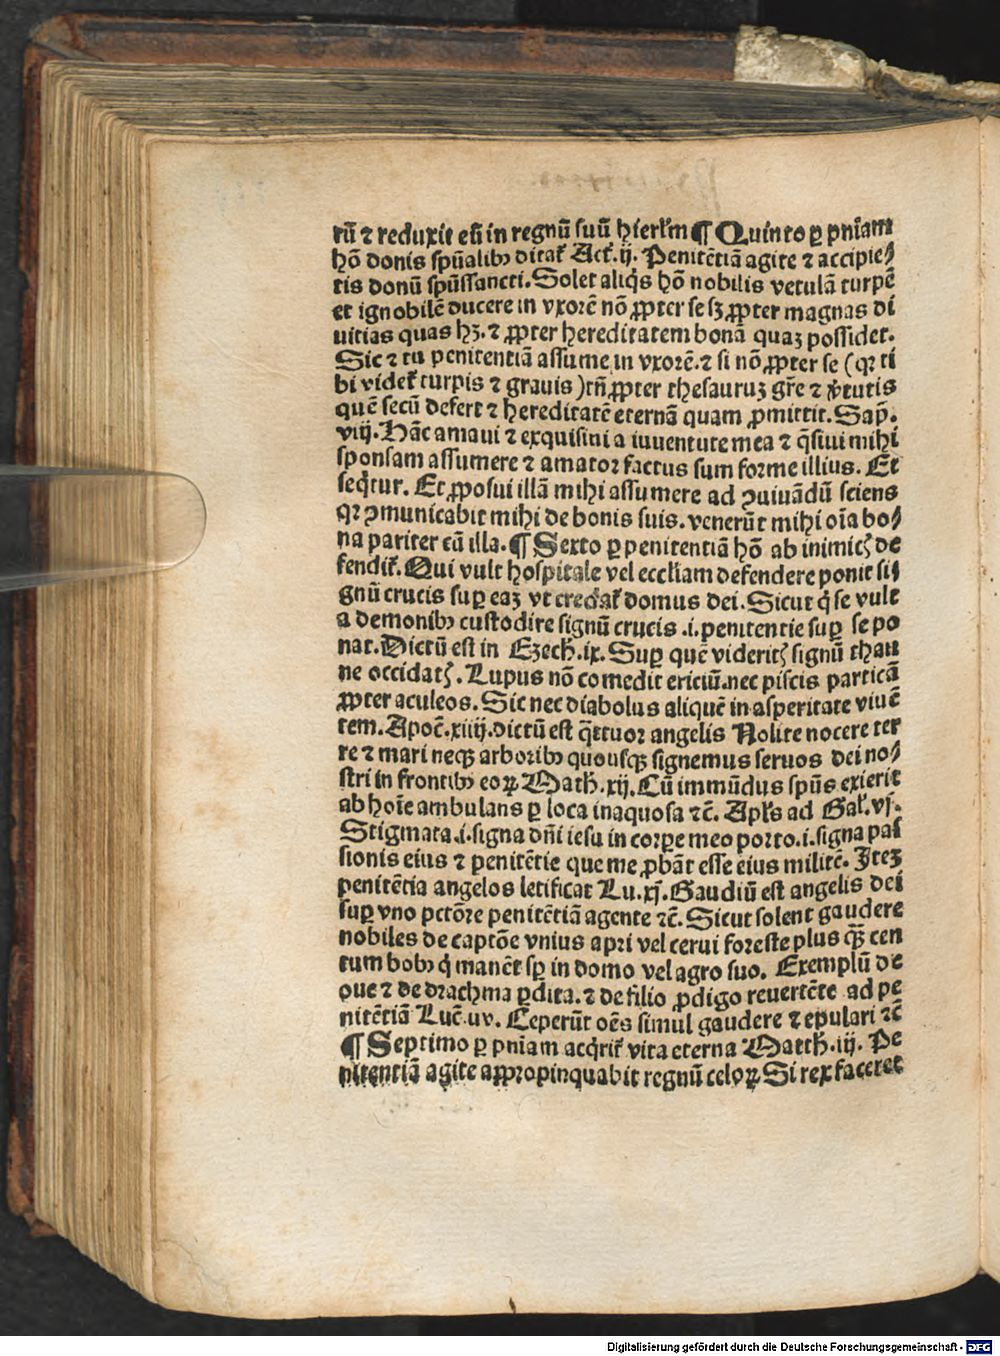 tũ ⁊ reduxit eũ in regnũ suũ hierłm ¶ Quinto ꝑ pniam
hõ donis spũalibꝰ ditat᷑ Act᷑. ij. Penitẽtiã agite ⁊ accipie⸗
tis donũ spũssancti. Solet aliq̃s hõ nobilis vetulã turpẽ
et ignobilẽ ducere in vxorẽ nõ ꝓpter se sꝫ ꝓpter magnas di
uitias quas hꝫ. ⁊ ꝓpter hereditatem bonã quaꝫ possidet.
Sic ⁊ tu penitentiã assume in vxorẽ. ⁊ si nõ ꝓpter se (qꝛ ti
bi videt᷑ turpis ⁊ grauis) tñ ꝓpter thesauruꝫ gr̃e ⁊ v̾tutis
quẽ secũ defert ⁊ hereditatẽ eternã quam ꝓmittit. Sap̃.
viij. Hãc amaui ⁊ exquisiui a iuuentute mea ⁊ q̃siui mihi
sponsam assumere ⁊ amator factus sum forme illius. Et
seq̃tur. Et ꝓposui illã mihi assumere ad ꝯuiuãdũ sciens
qꝛ ꝯmunicabit mihi de bonis suis. venerũt mihi oĩa bo⸗
na pariter cũ illa. ¶ Sexto ꝑ penitentiã hõ ab inimicꝭ de
fendit᷑. Qui vult hospitale vel eccłiam defendere ponit si⸗
gnũ crucis suꝑ eaꝫ vt credat᷑ domus dei. Sicut q̇ se vult
a demonibꝰ custodire signũ crucis .i. penitentie suꝑ se po
nat. Dictũ est in Ezech̃. ix. Suꝑ quẽ videritꝭ signũ thau
ne occidatꝭ. Lupus nõ comedit ericiũ. nec piscis particã
ꝓpter aculeos. Sic nec diabolus aliquẽ in asperitate viuẽ
tem. Apoc̃. xiiij. dictũ est q̃ttuor angelis Nolite nocere ter
re ⁊ mari neqꝫ arboribꝰ quousqꝫ signemus seruos dei no⸗
stri in frontibꝰ eoꝝ Math̃. xij. Cũ immũdus spũs exierit
ab hoĩe ambulans ꝑ loca inaquosa ⁊c̃. Apłs ad Gał. vj.
Stigmata .i. signa dñi iesu in corꝑe meo porto .i. signa pas
sionis eius ⁊ penitẽtie que me ꝓbãt esse eius militẽ. Iteꝫ
penitẽtia angelos letificat Lu. xj. Gaudiũ est angelis dei
suꝑ vno pctõre penitẽtiã agente ⁊c̃. Sicut solent gaudere
nobiles de captõe vnius apri vel cerui foreste plus qꝫ̃ cen
tum bobꝰ q̇ manẽt sꝑ in domo vel agro suo. Exemplũ de
oue ⁊ de drachma ꝑdita. ⁊ de filio ꝓdigo reuertẽte ad pe
nitẽtiã Luc̃. uv. Ceperũt oẽs simul gaudere ⁊ epulari ⁊c̃
¶ Septimo ꝑ pniam acq̇rit᷑ vita eterna Matth̃. iij. Pe
nitentiã agite aꝓpropinquabit regnũ celoꝝ Si rex faceret
Digitalisierung gefördert durch die Deutsche Forschungsgemeinschaft - DFG